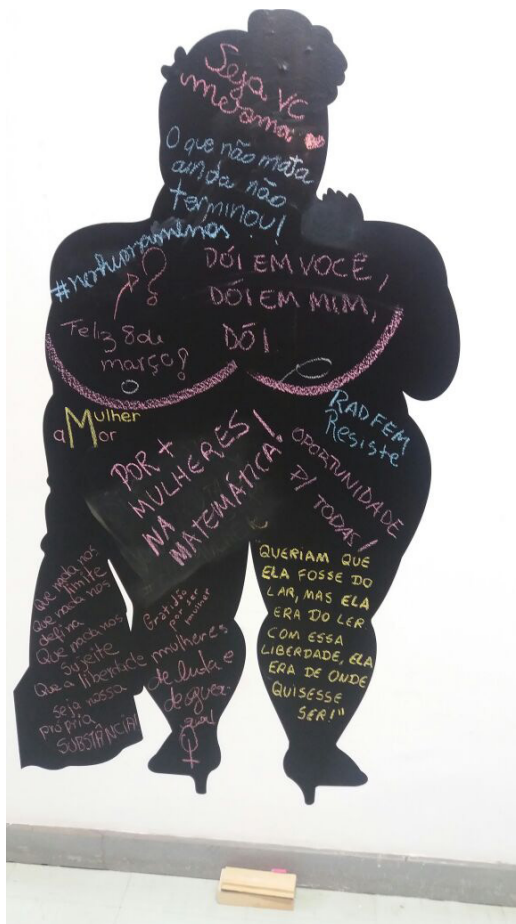 Seja VC
mesma
O que não mata
ainda não
terminou!
#nenhumamenos
DÓI EM VOCÊ,
DÓI EM MIM,
DÓI
?
Feliz 8 de
março!
Mulher
aMor
RADFEM
Resiste
POR +
MULHERES
NA
MATEMÁTICA!
OPORTUNIDADE
P/ TODAS!
"QUERIAM QUE
ELA FOSSE DO
LAR, MAS ELA
ERA DO LER
COM ESSA
LIBERDADE, ELA
ERA DE ONDE
QUISESSE
SER!"
Que nada nos
limite
Que nada nos
defina
Que nada nos
sujeite
Que a liberdade
seja nossa
própria
SUBSTÂNCIA!
Gratidão
por ser
mulher
mulheres
de luta e